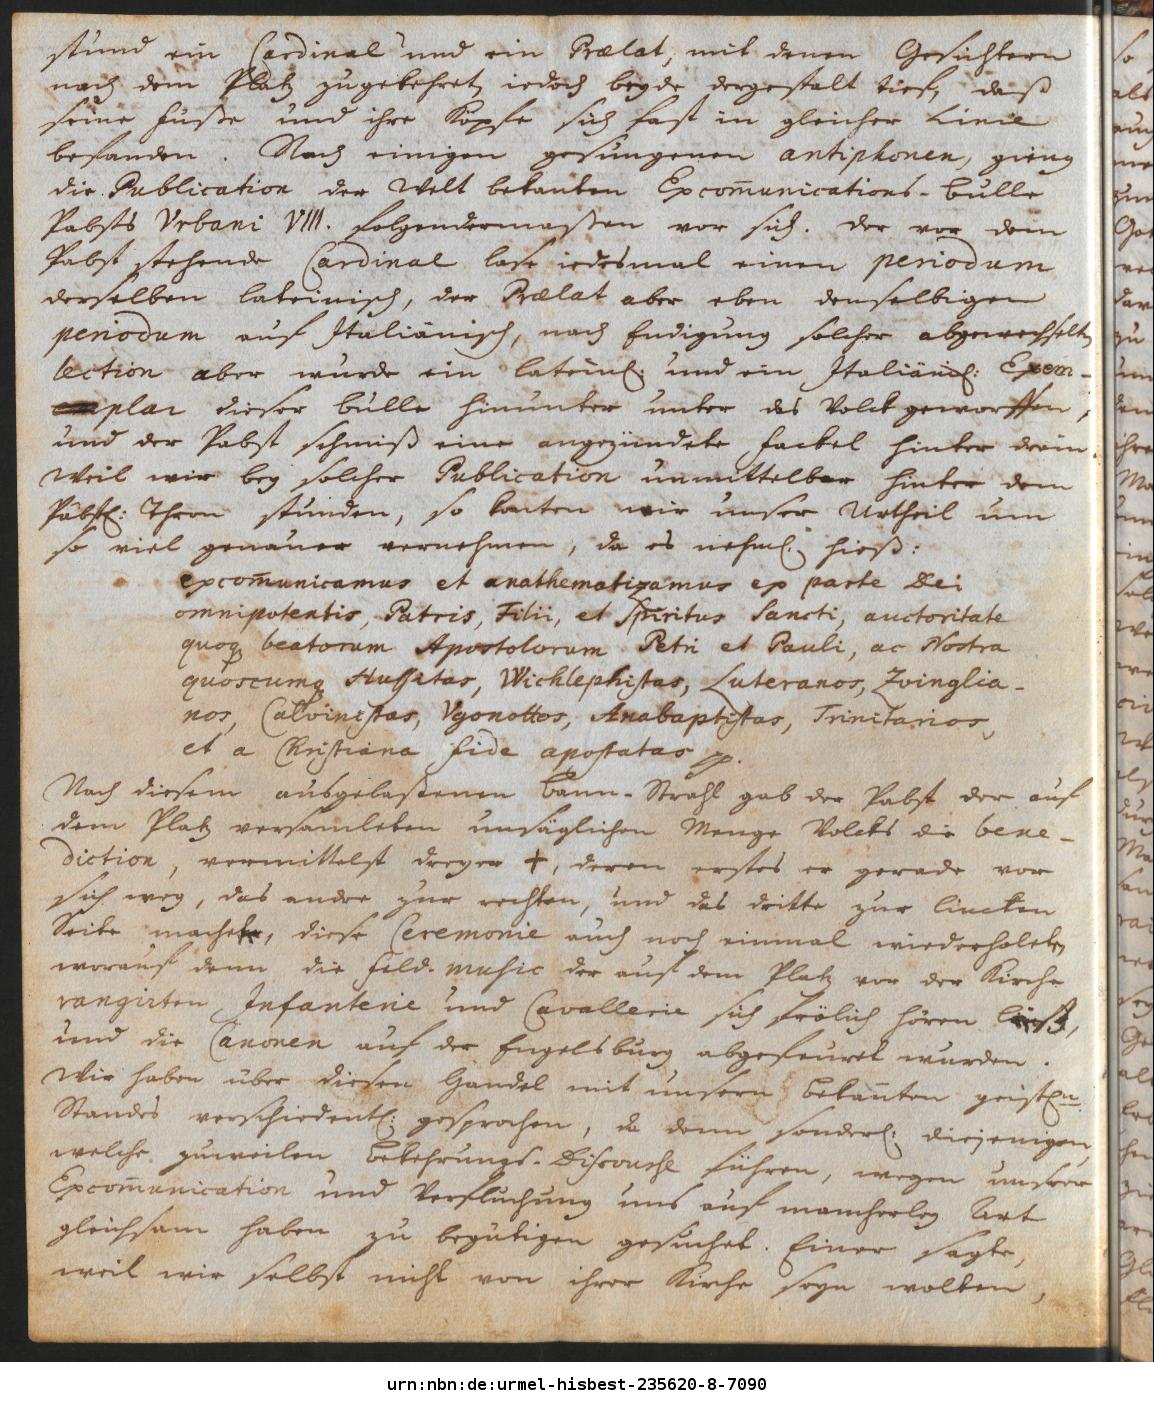 stund ein Cardinal und ein Prælat, mit denen Gesichtern
nach dem Platz zugekehret, iedoch beyde dergestalt tief, daß
seine Fuße und ihre Kopfe sich fast in gleicher Linie
befanden. Nach einigen gesungenen antiphonen, gieng
die Publication der Welt bekanten Excom̅unications-Bulle
Pabsts Urbani VIII. folgendermaßen vor sich. Der vor dem
Pabst stehende Cardinal lase iedesmal einen periodum
derselben lateinisch, der Prælat aber eben denselbigen
periodum auf Italiänisch, nach Endigung solcher abgewechselten
lection aber wurde ein latein: und ein Italiäni: Exem-
plar dieser Bulle hinunter unter das Volck geworffen,
und der Pabst schmiß eine angezündete Fackel hinter drein.
Weil wir bey solcher Publication unmittelbar hinter dem
Päbstl: Thron stunden, so konten wir unser Urtheil um
so viel genauer vernehmen, da es nehml. hieß:
excom̅unicamus et anathematizamus ex parte Dei
omnipotentis, Patris, Filii, et Spiritus Sancti, auctoritate
quoq beatorum Apostolorum Petri et Pauli, ac Nostra
quoscumq Hussitas, Wichlephistas, Luteranos, Zvinglia-
nos, Calvinistas, Vgonottos, Anabaptistas, Trinitarios,
et a Christiana fide apostatas p.
Nach diesem ausgelaßenen Bann-Strahl gab der Pabst der auf
dem Platz versamleten unsäglichen Menge Volcks die bene-
diction, vermittelst dreyer +, deren erstes er gerade vor
sich weg, das andre zur rechten, und das dritte zur lincken
Seite machte, diese Ceremonie auch noch einmal wiederholete,
worauf denn die Feld-music der auf dem Platz vor der Kirche
rangirten Infanterie und Cavallerie sich frölich hören ließ,
und die Canonen auf der Engelsburg abgefeuret wurden.
Wir haben über diesen Handel mit unsern bekan̅ten geistln
Standes verschiedentl: gesprochen, da denn sonderl: diejenigen,
welche zuweilen Bekehrungs-Discourse führen, wegen unsrer
Excom̅unication und Verfluchung uns auf mancherley Art
gleichsam haben zu begütigen gesuchet. Einer sagte,
weil wir selbst nicht von ihrer Kirche seyn wolten,
urn:nbn:de:urmel-hisbest-235620-8-7090